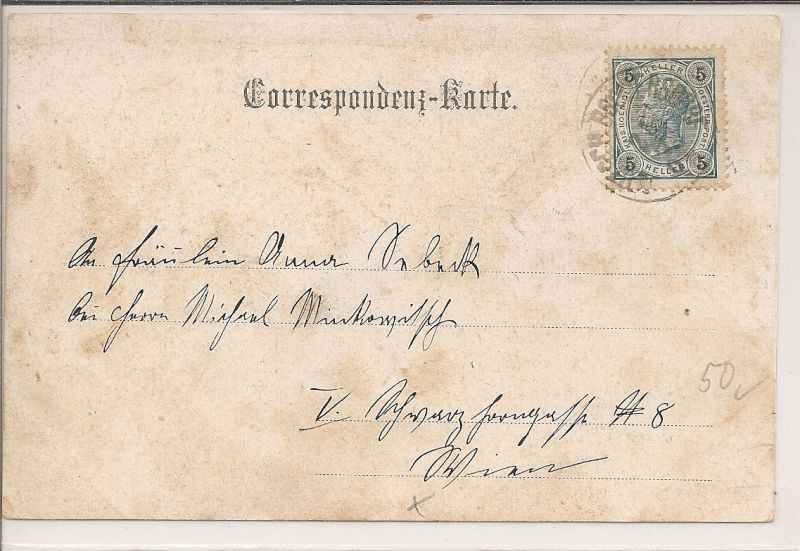 Correspondenz-Karte.
5 HELLER 5
KAIS. KOENIGL. OESTERR. POST.
5 HELLER 5
An Fräulein Anna Sebeck
bei Herrn Michael Minkowitsch
V. Schwarzhorngasse # 8
Wien
50